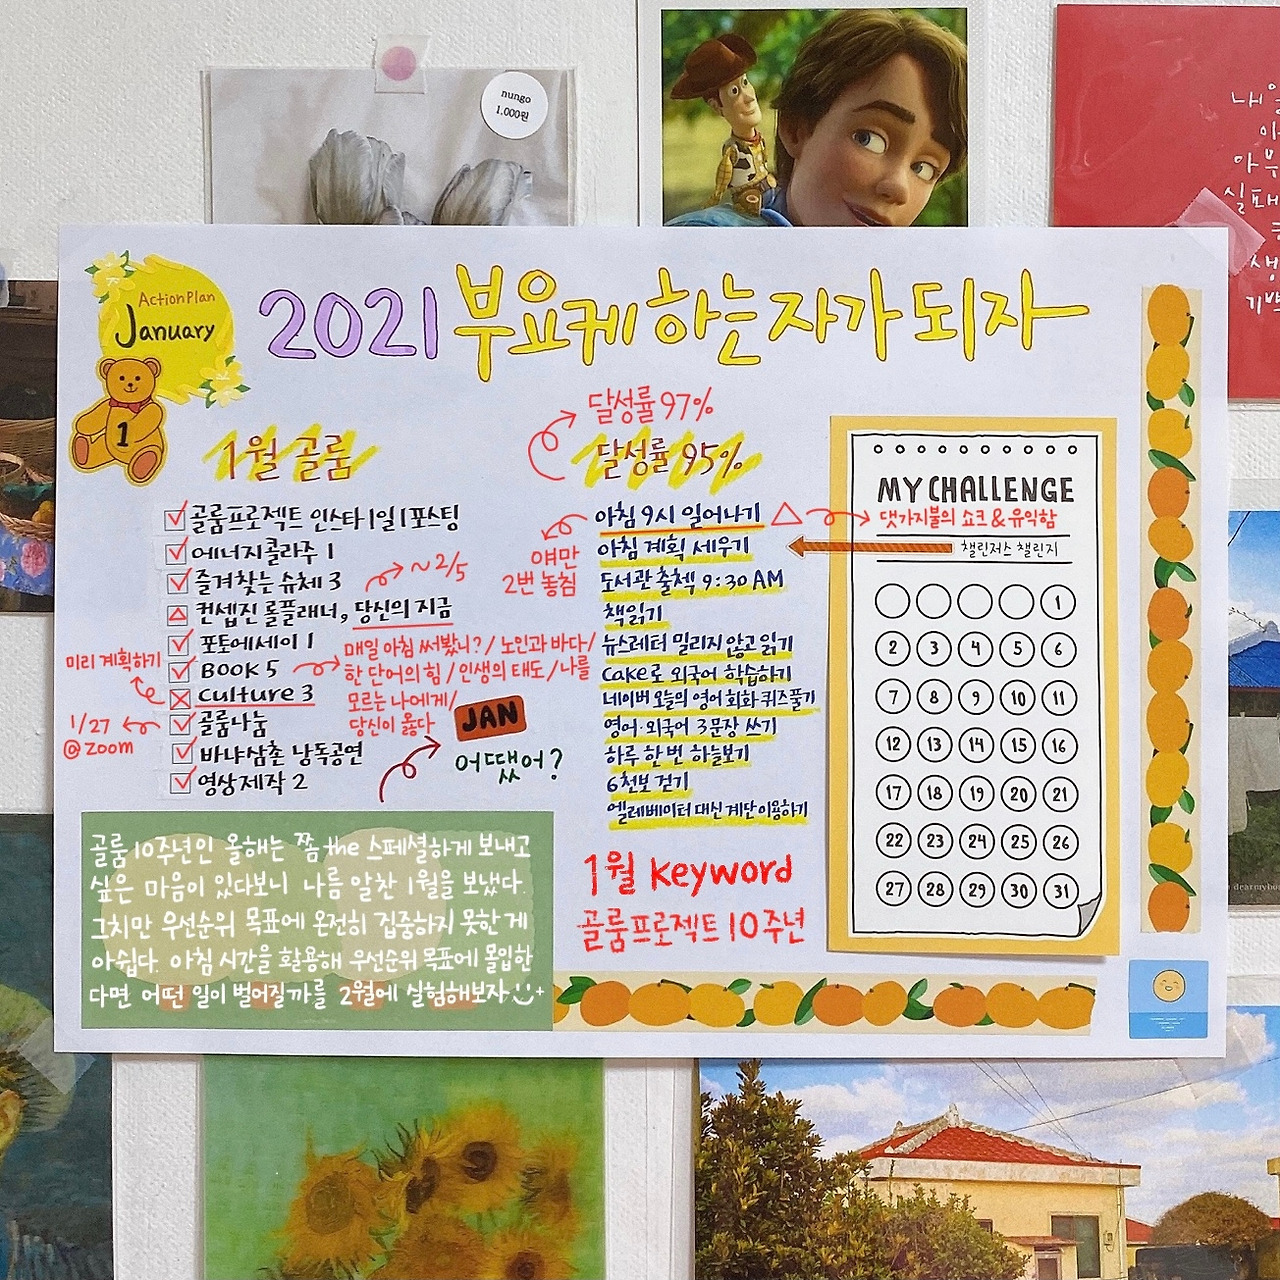 nungo
1,000원
내일
실패
생
기백
Action Plan
January
1
2021 부요케 하는 자가 되자
1월 골룸
골룸프로젝트 인스타 1일 1포스팅
에너지콜라주 1
즐겨찾는 슈체 3
~2/5
컨셉진 롤플래너, 당신의 지금
포토에세이 1
미리 계획하기
BOOK 5
매일 아침 써봤니? / 노인과 바다 /
한 단어의 힘 / 인생의 태도 / 나를
모르는 나에게 /
당신이 옳다
Culture 3
골룸나눔
1/27
@Zoom
바냐삼촌 낭독공연
영상제작 2
JAN
어땠어?
달성률 97%
달성률 95%
아침 9시 일어나기
얘만
2번 놓침
아침 계획 세우기
도서관 출첵 9:30 AM
책읽기
뉴스레터 밀리지 않고 읽기
Cake로 외국어 학습하기
네이버 오늘의 영어 회화 퀴즈풀기
영어·외국어 3문장 쓰기
하루 한 번 하늘보기
6천보 걷기
엘레베이터 대신 계단 이용하기
1월 Keyword
골룸프로젝트 10주년
MY CHALLENGE
댓가지불의 쇼크 & 유익함
챌린저스 챌린지
1
2 3 4 5 6
7 8 9 10 11
12 13 14 15 16
17 18 19 20 21
22 23 24 25 26
27 28 29 30 31
골룸 10주년인 올해는 쫌 the 스페셜하게 보내고
싶은 마음이 있다보니 나름 알찬 1월을 보냈다.
그치만 우선순위 목표에 온전히 집중하지 못한 게
아쉽다. 아침 시간을 활용해 우선순위 목표에 몰입한
다면 어떤 일이 벌어질까를 2월에 실험해보자